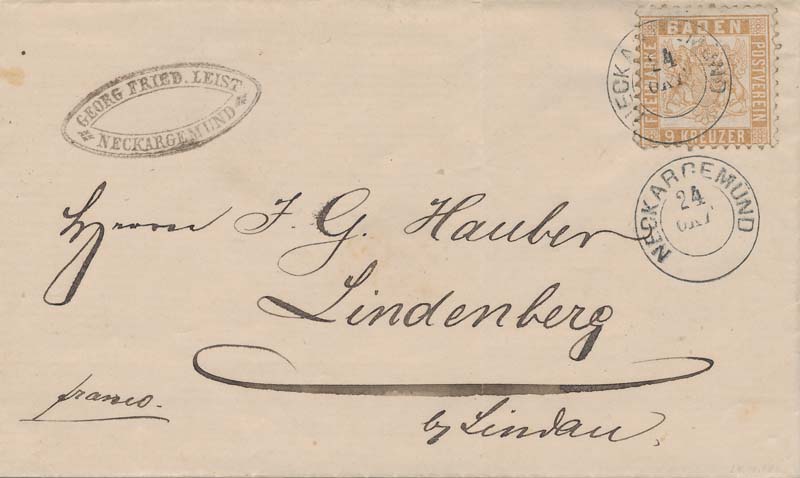 GEORG FRIED. LEIST
NECKARGEMUND
BADEN
FREIMARKE
POSTVEREIN
9 KREUZER
NECKARGEMÜND
24
OKT
NECKARGEMÜND
24
OKT
Herrn J. G. Hauber
Lindenberg
franco.
by Lindau.